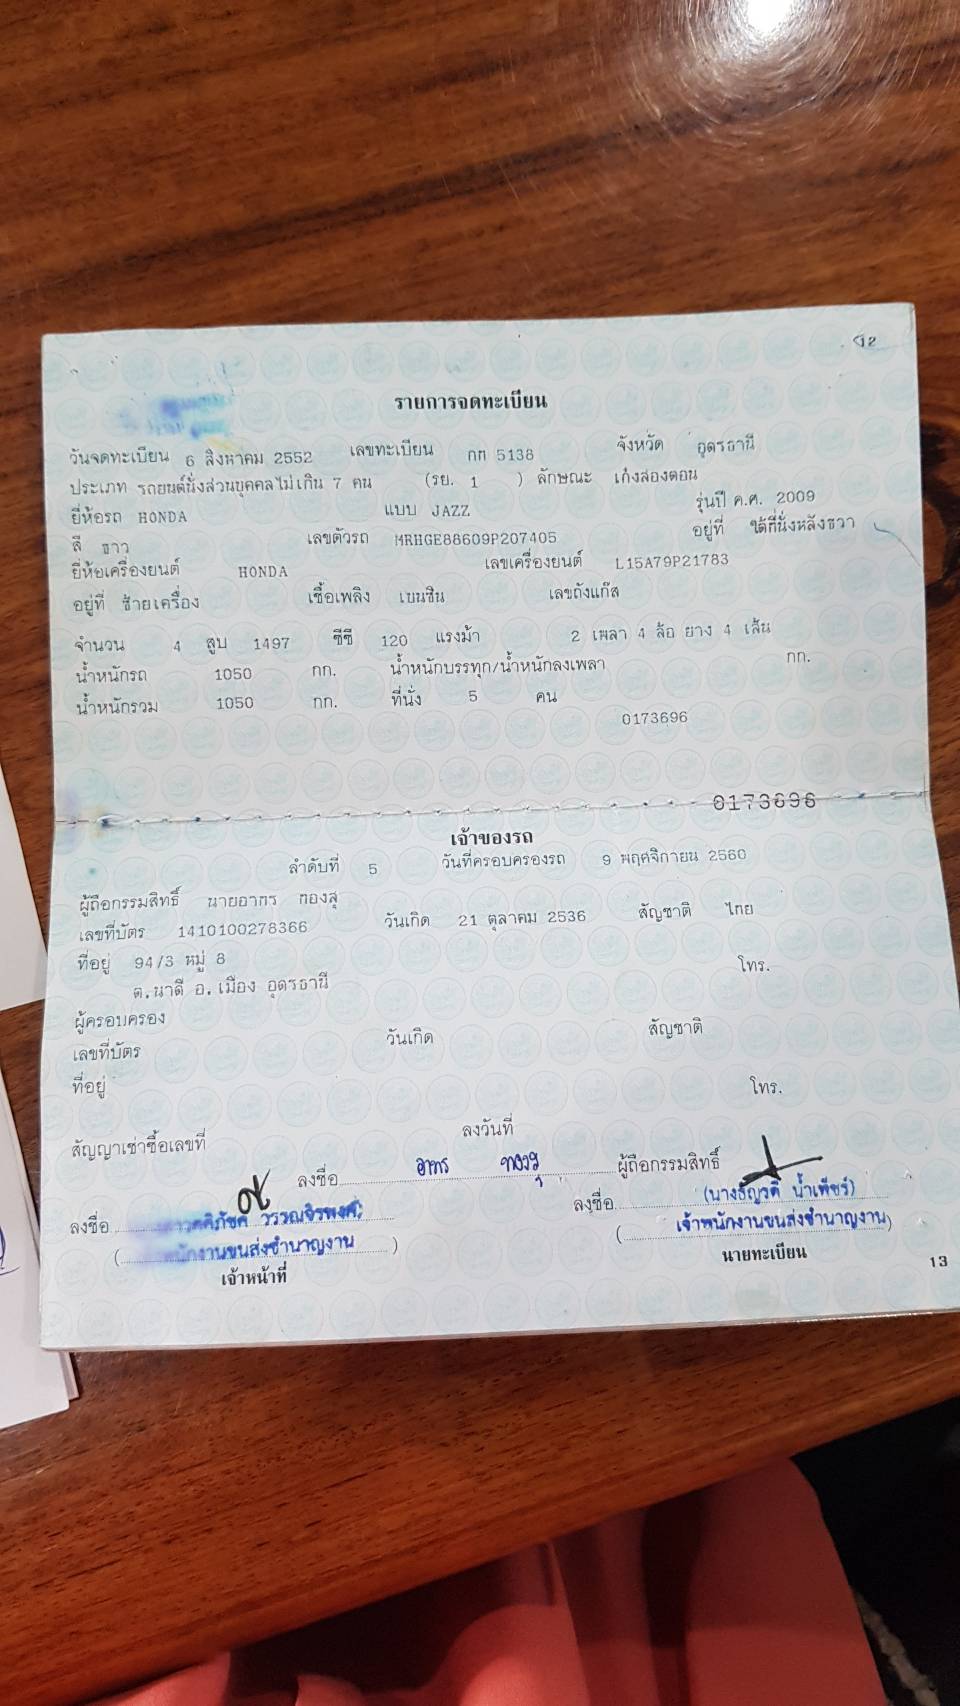 12
รายการจดทะเบียน
วันจดทะเบียน 6 สิงหาคม 2552 เลขทะเบียน กท 5138 จังหวัด อุดรธานี
ประเภท รถยนต์นั่งส่วนบุคคลไม่เกิน 7 คน (รย. 1 ) ลักษณะ เก๋งสองตอน
ยี่ห้อรถ HONDA แบบ JAZZ รุ่นปี ค.ศ. 2009
สี ขาว เลขตัวรถ MRHGE88609P207405 อยู่ที่ ใต้ที่นั่งหลังขวา
ยี่ห้อเครื่องยนต์ HONDA เลขเครื่องยนต์ L15A79P21783
อยู่ที่ ซ้ายเครื่อง เชื้อเพลิง เบนซิน เลขถังแก๊ส
จำนวน 4 สูบ 1497 ซีซี 120 แรงม้า 2 เพลา 4 ล้อ ยาง 4 เส้น
น้ำหนักรถ 1050 กก. น้ำหนักบรรทุก/น้ำหนักลงเพลา กก.
น้ำหนักรวม 1050 กก. ที่นั่ง 5 คน
0173696
0173696
เจ้าของรถ
ลำดับที่ 5 วันที่ครอบครองรถ 9 พฤศจิกายน 2560
ผู้ถือกรรมสิทธิ์ นายอาทร ทองสุ
เลขที่บัตร 1410100278366 วันเกิด 21 ตุลาคม 2536 สัญชาติ ไทย
ที่อยู่ 94/3 หมู่ 8 โทร.
ต.นาดี อ.เมือง อุดรธานี
ผู้ครอบครอง
เลขที่บัตร วันเกิด สัญชาติ
ที่อยู่ โทร.
สัญญาเช่าซื้อเลขที่ ลงวันที่
ลงชื่อ อาทร ทองสุ ผู้ถือกรรมสิทธิ์
ลงชื่อ ลงชื่อ (นางธัญรดี น้ำเพียร์)
( พนักงานขนส่งชำนาญงาน ) ( เจ้าพนักงานขนส่งชำนาญงาน )
เจ้าหน้าที่ นายทะเบียน
13